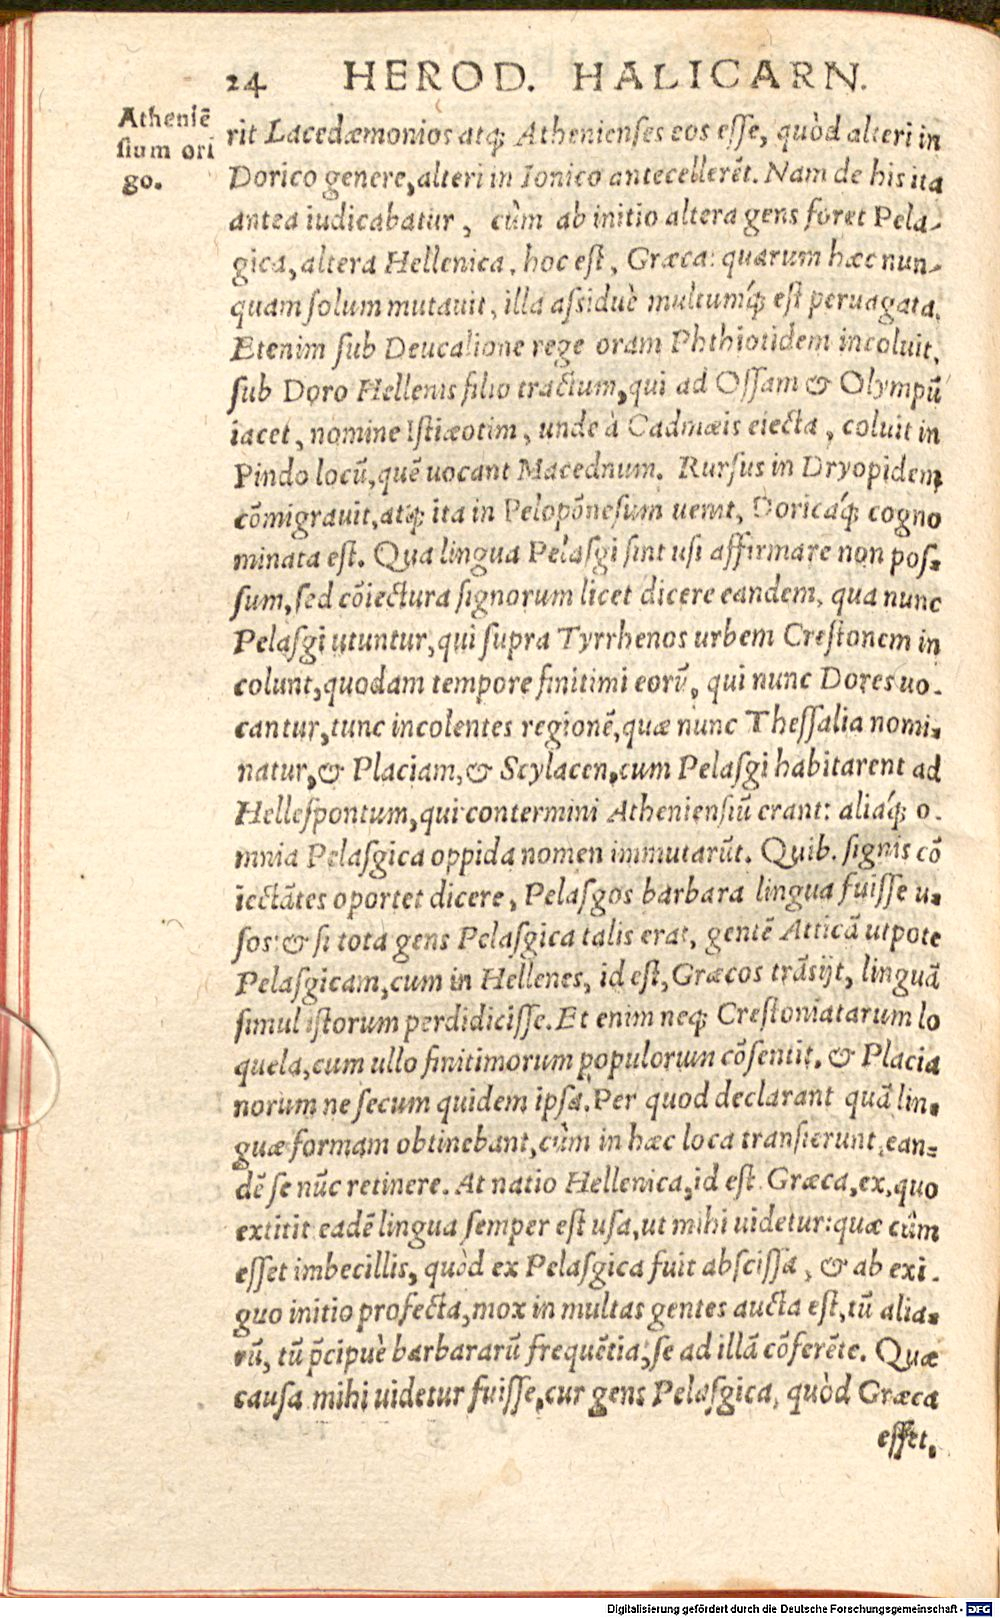 24 HEROD. HALICARN.
Atheniē
sium ori
go.
rit Lacedæmonios atq́; Athenienses eos esse, quòd alteri in
Dorico genere, alteri in Ionico antecellerēt. Nam de his ita
antea iudicabatur, cùm ab initio altera gens foret Pela-
gica, altera Hellenica, hoc est, Græca: quarum hæc nun-
quam solum mutauit, illa assiduè multumq́; est peruagata.
Etenim sub Deucalione rege oram Phthiotidem incoluit,
sub Doro Hellenis filio tractum, qui ad Ossam & Olympū
iacet, nomine Istiæotim, unde à Cadmæis eiecta, coluit in
Pindo locū, quē uocant Macednum. Rursus in Dryopidem
cōmigrauit, atq; ita in Pelopōnesum uenit, Doricaq́; cogno
minata est. Qua lingua Pelasgi sint usi affirmare non pos-
sum, sed cōiectura signorum licet dicere eandem, qua nunc
Pelasgi utuntur, qui supra Tyrrhenos urbem Crestonem in
colunt, quodam tempore finitimi eorū, qui nunc Dores uo-
cantur, tunc incolentes regionē, quæ nunc Thessalia nomi-
natur, & Placiam, & Scylacen, cum Pelasgi habitarent ad
Hellespontum, qui contermini Atheniensiū erant: aliaq́; o-
mnia Pelasgica oppida nomen immutarūt. Quib. signis cō
iectātes oportet dicere, Pelasgos barbara lingua fuisse u-
sos: & si tota gens Pelasgica talis erat, gentē Atticā utpote
Pelasgicam, cum in Hellenes, id est, Græcos trāsijt, linguā
simul istorum perdidicisse. Et enim neq; Crestoniatarum lo
quela, cum ullo finitimorum populorum cōsentit, & Placia
norum ne secum quidem ipsa. Per quod declarant quā lin-
guæ formam obtinebant, cùm in hæc loca transierunt, ean-
dē se nūc retinere. At natio Hellenica, id est Græca, ex, quo
extitit eadē lingua semper est usa, ut mihi uidetur: quæ cùm
esset imbecillis, quòd ex Pelasgica fuit abscissa, & ab exi-
guo initio profecta, mox in multas gentes aucta est, tū alia-
rū, tū p̄cipuè barbararū frequētia, se ad illā cōferēte. Quæ
causa mihi uidetur fuisse, cur gens Pelasgica, quòd Græca
esset,
Digitalisierung gefördert durch die Deutsche Forschungsgemeinschaft - DFG